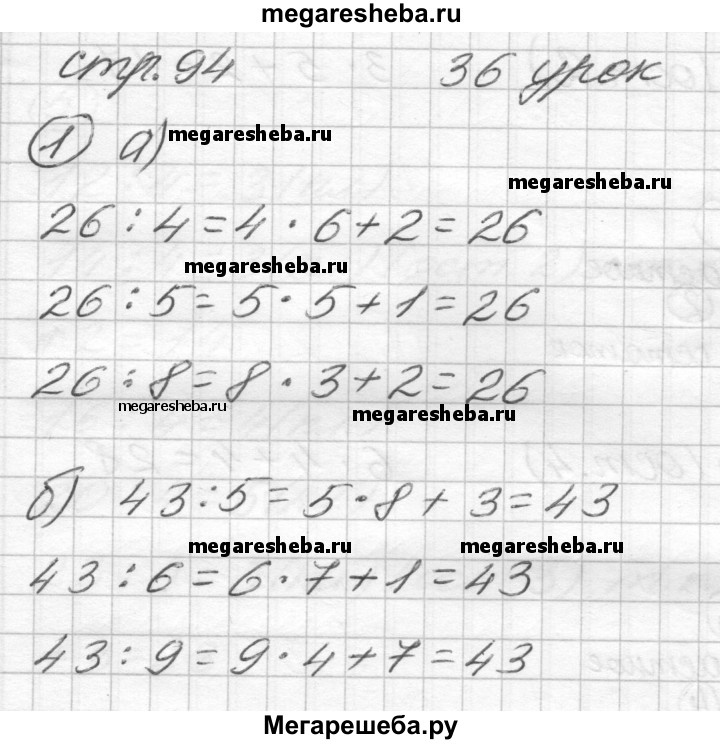 megaresheba.ru
стр. 94 36 урок
1 а) megaresheba.ru
megaresheba.ru
26 : 4 = 4 · 6 + 2 = 26
megaresheba.ru
26 : 5 = 5 · 5 + 1 = 26
26 : 8 = 8 · 3 + 2 = 26
megaresheba.ru megaresheba.ru
б) 43 : 5 = 5 · 8 + 3 = 43
megaresheba.ru megaresheba.ru
43 : 6 = 6 · 7 + 1 = 43
43 : 9 = 9 · 4 + 7 = 43
Мегарешеба.ру